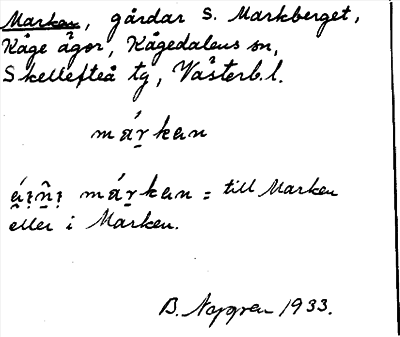 Marken, gårdar S. Markberget,
Kåge ägor, Kågedalens sn,
Skellefteå tg, Västerb.l.
márkan
márkan = till Marken
eller i Marken.
B. 1933.